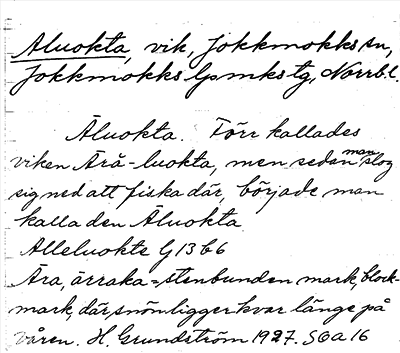 Aluokta, vik, Jokkmokks sn,
Jokkmokks lpmks tg, Norrb. l.
Äluokta. Förr kallades
viken Ärå-luokta, men sedan man slog
sig ned att fiska där, började man
kalla den Äluokta
Alleluokte G 13 b 6
Ära, ärraka = stenbunden mark, block-
mark, där snön ligger kvar länge på
våren. H. Grundström 1927. SOA 16